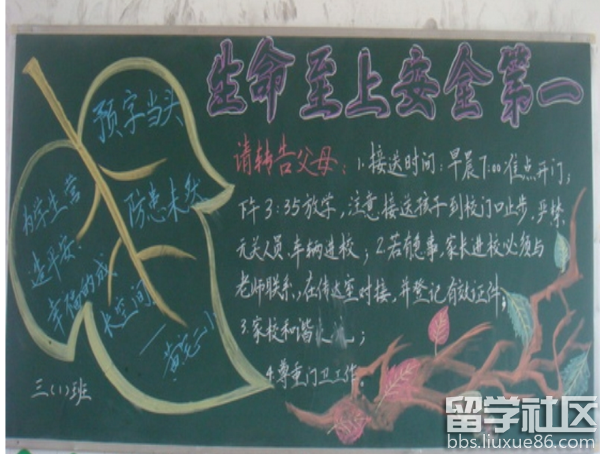 生命至上安全第一
预字当头
防患未然
为学生营
造平安、
幸福的成
长空间
三(1)班
请转告父母：1.接送时间：早晨7:00准点开门;
下午3:35放学,注意接送孩子到校门口止步,严禁
无关人员、车辆进校；2.若有急事,家长进校必须与
老师联系,在传达室对接,并登记有效证件;
3.家校和谐
4.尊重门卫工作
留学社区
bbs.liuxue86.com